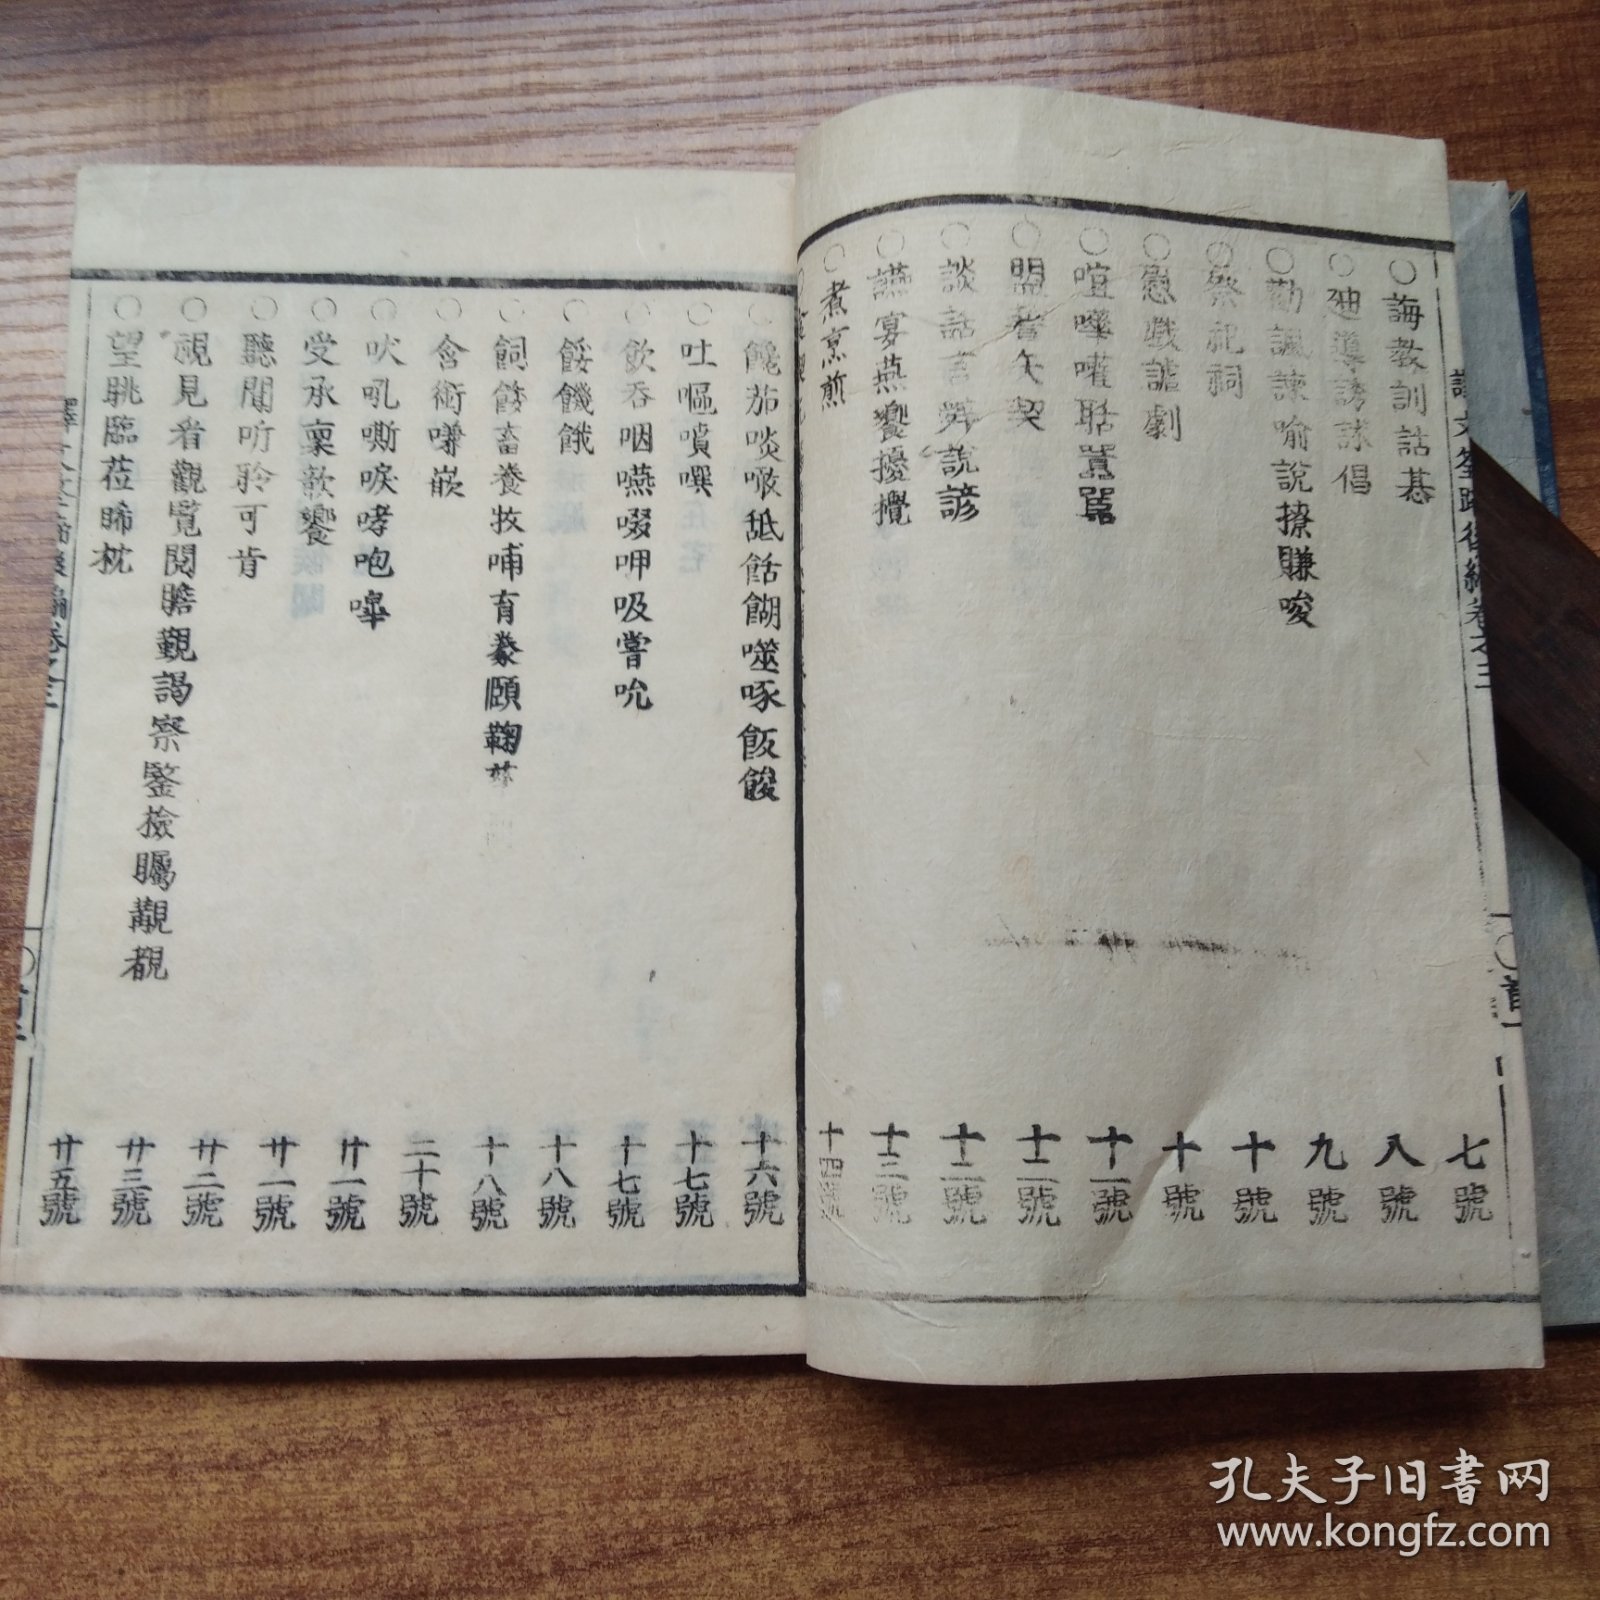 ○誨教訓詁惎 七號
○迪導誘誅倡 八號
○勸諷諫喻說撩賺唆 九號
○祭祀祠 十號
○慰戲謔劇 十號
○喧嘩嚾聒囂嚚 十一號
○盟誓矢契 十二號
○談話言辨說諺 十二號
○讌宴燕饗擾攪 十三號
○煮烹煎 十四號
譯文筌蹄後編卷之三 ○首一
○饞茹啖噉舐餂餬噬啄飯餕 十六號
○吐嘔噴噀 十七號
○飲吞咽嚥啜呷吸嘗吮 十七號
○餒饑餓 十八號
○飼餧畜養牧哺育豢頤鞠莝 十八號
○含銜嚼嵌 二十號
○吠吼嘶唳哮咆嗥 廿一號
○受承稟歆饗 廿一號
○聽聞听聆可肯 廿二號
○視見看觀覧閱瞻覲謁察鑒撿矚覯覩 廿三號
○望眺臨莅睎枕 廿五號
孔夫子旧书网
www.kongfz.com